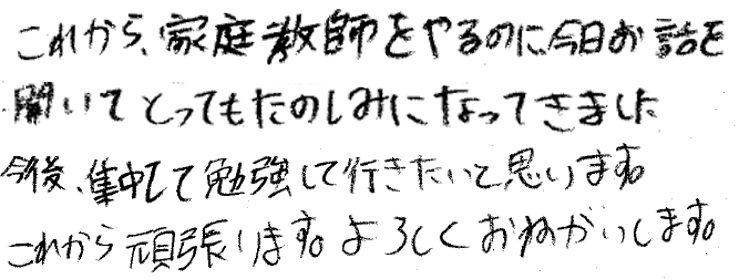 これから、家庭教師をやるのに、今日お話を
聞いてとってもたのしみになってきました
今後、集中して勉強して行きたいと思います。
これから頑張ります。よろしくおねがいします。